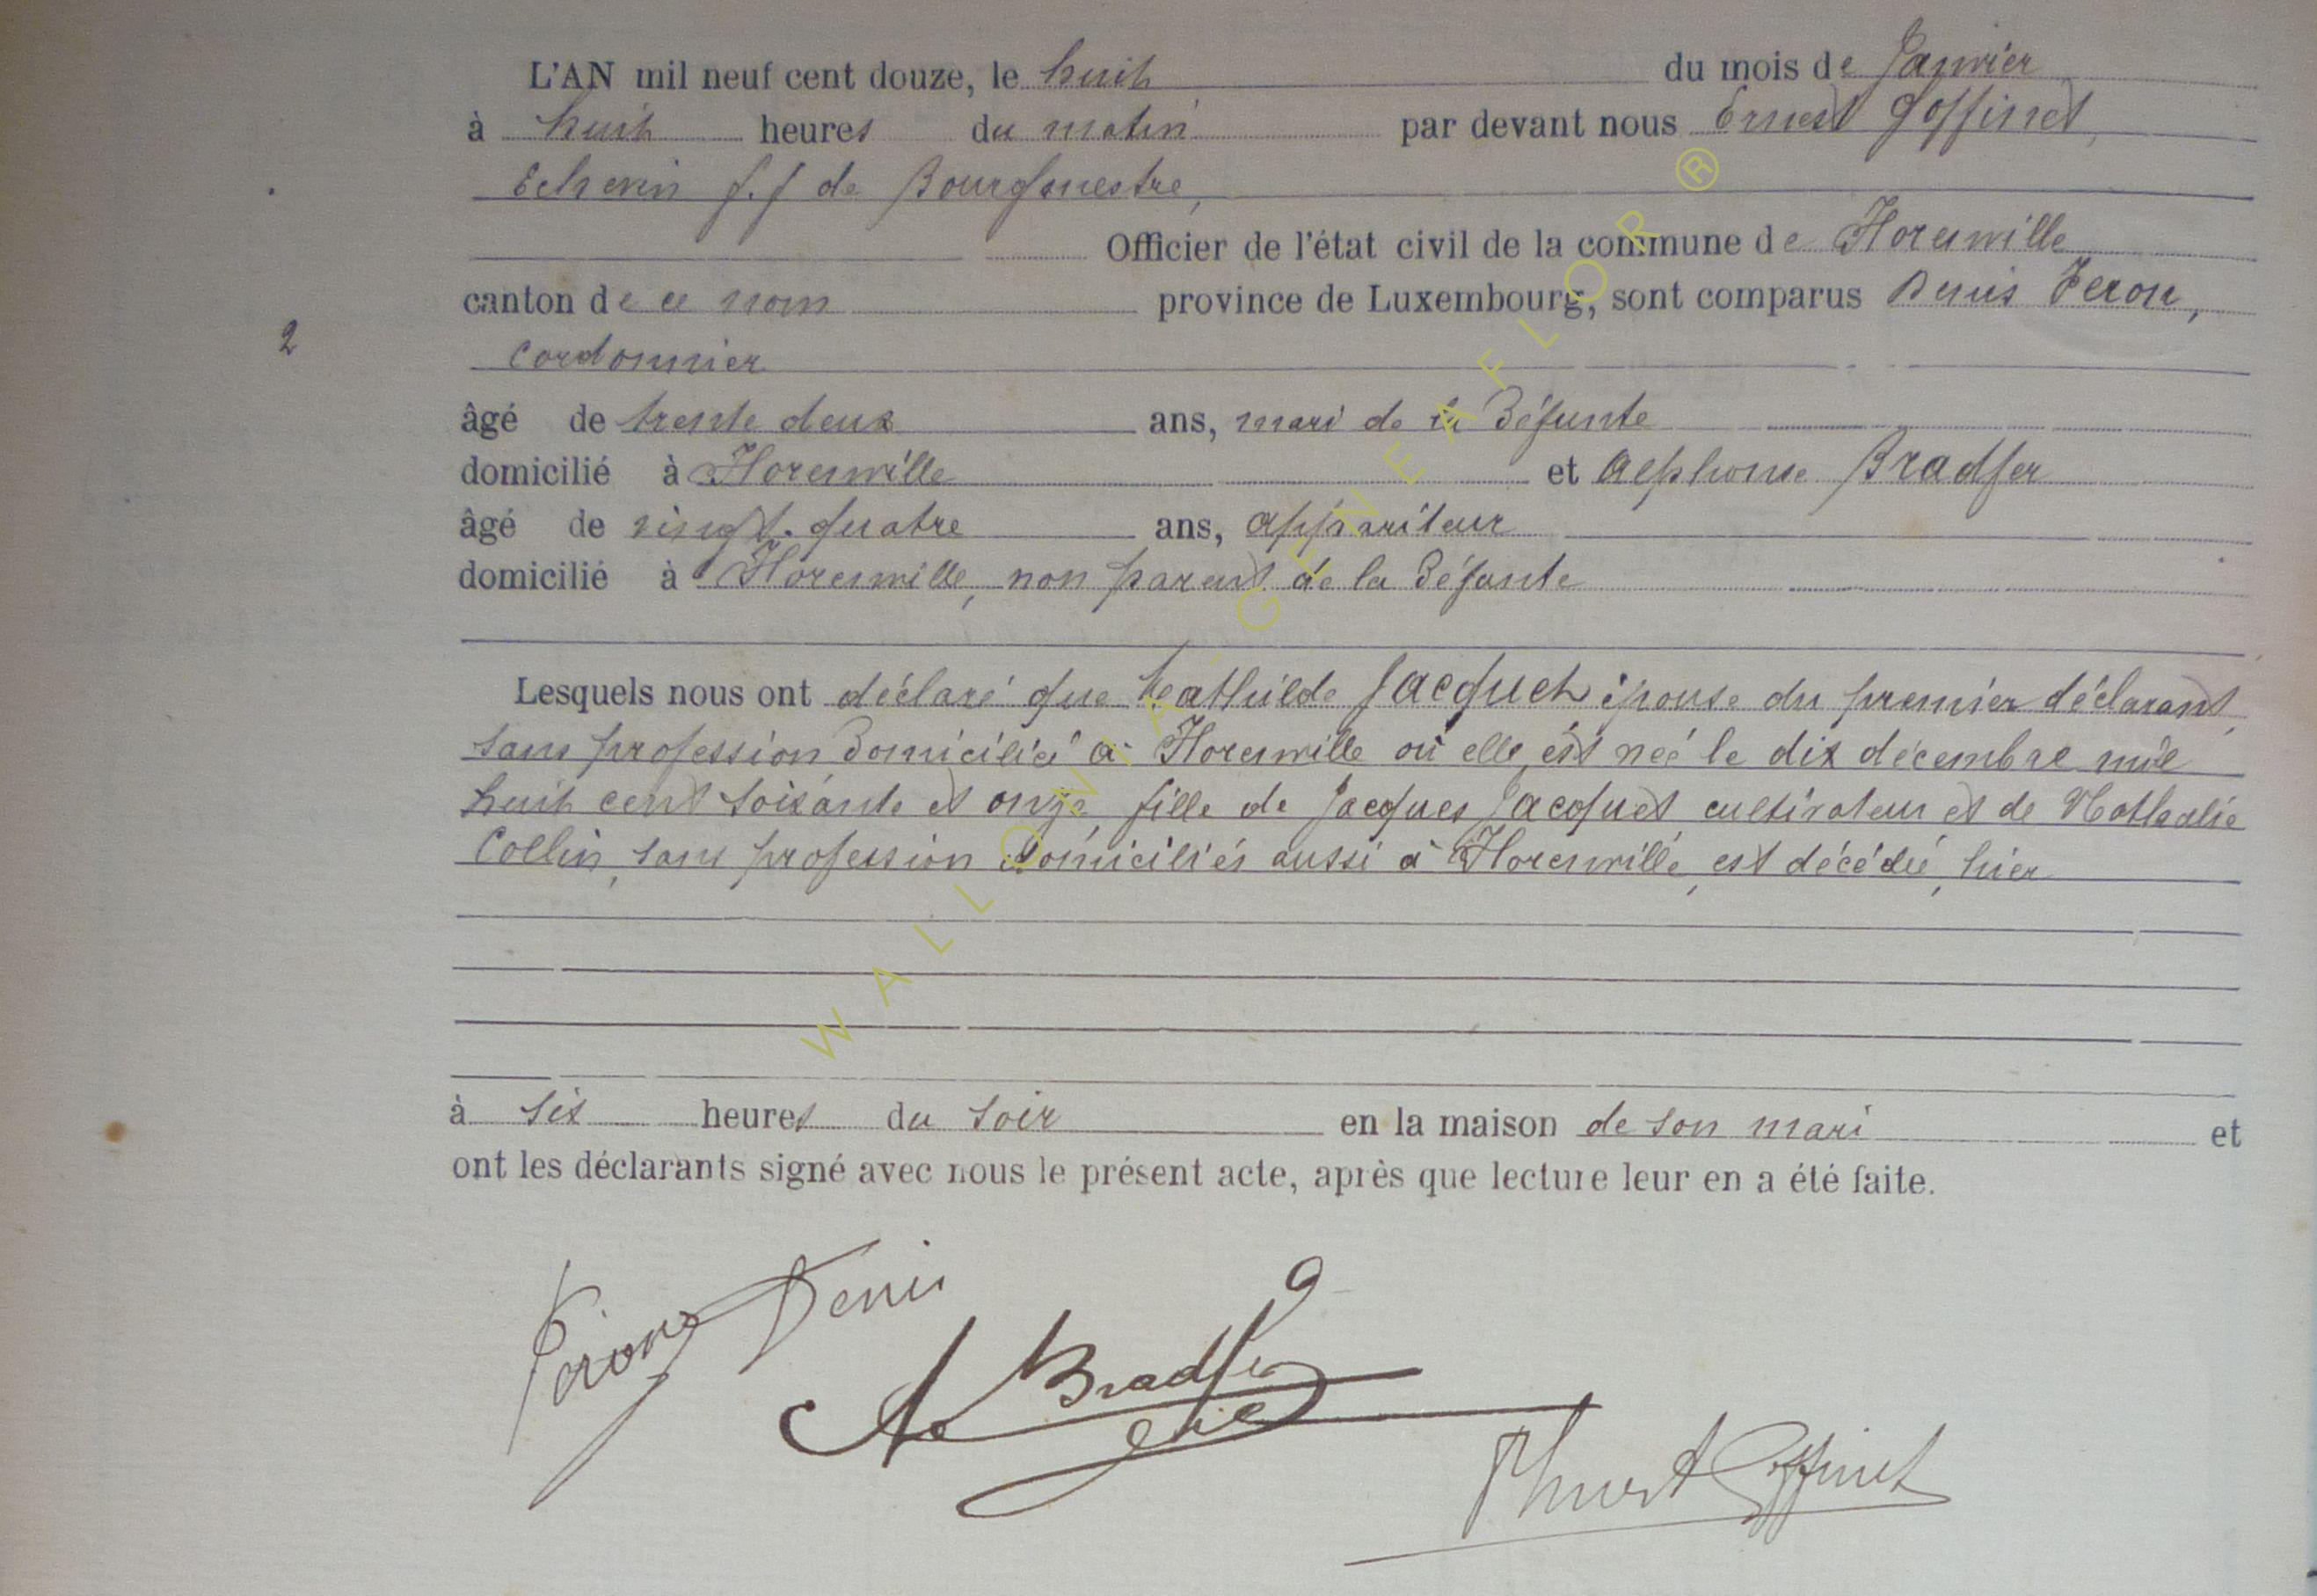 L'AN mil neuf cent douze, le huit du mois de Janvier
à huit heures du matin par devant nous Ernest Goffinet,
Echevin f.f de Bourgmestre,
Officier de l'état civil de la commune de Florenville
canton de ce nom province de Luxembourg, sont comparus Denis Feron,
2
Cordonnier
âgé de trente deux ans, mari de la Défunte
domicilié à Florenville et Alphonse Bradfer
âgé de vingt-quatre ans, appariteur
domicilié à Florenville, non parent de la Défunte
Lesquels nous ont déclaré que Mathilde Jacquet épouse du premier déclarant,
sans profession Domiciliée à Florenville où elle est née le dix décembre mil
huit cent soixante et onze, fille de Jacques Jacquet cultivateur et de Nathalie
Collin, sans profession Domiciliés aussi à Florenville, est décédée, hier
à six heures du soir en la maison de son mari et
ont les déclarants signé avec nous le présent acte, après que lecture leur en a été faite.
Denis
A Bradfer
Ernest Goffinet
WALLONIA - GENEAFLOR ®